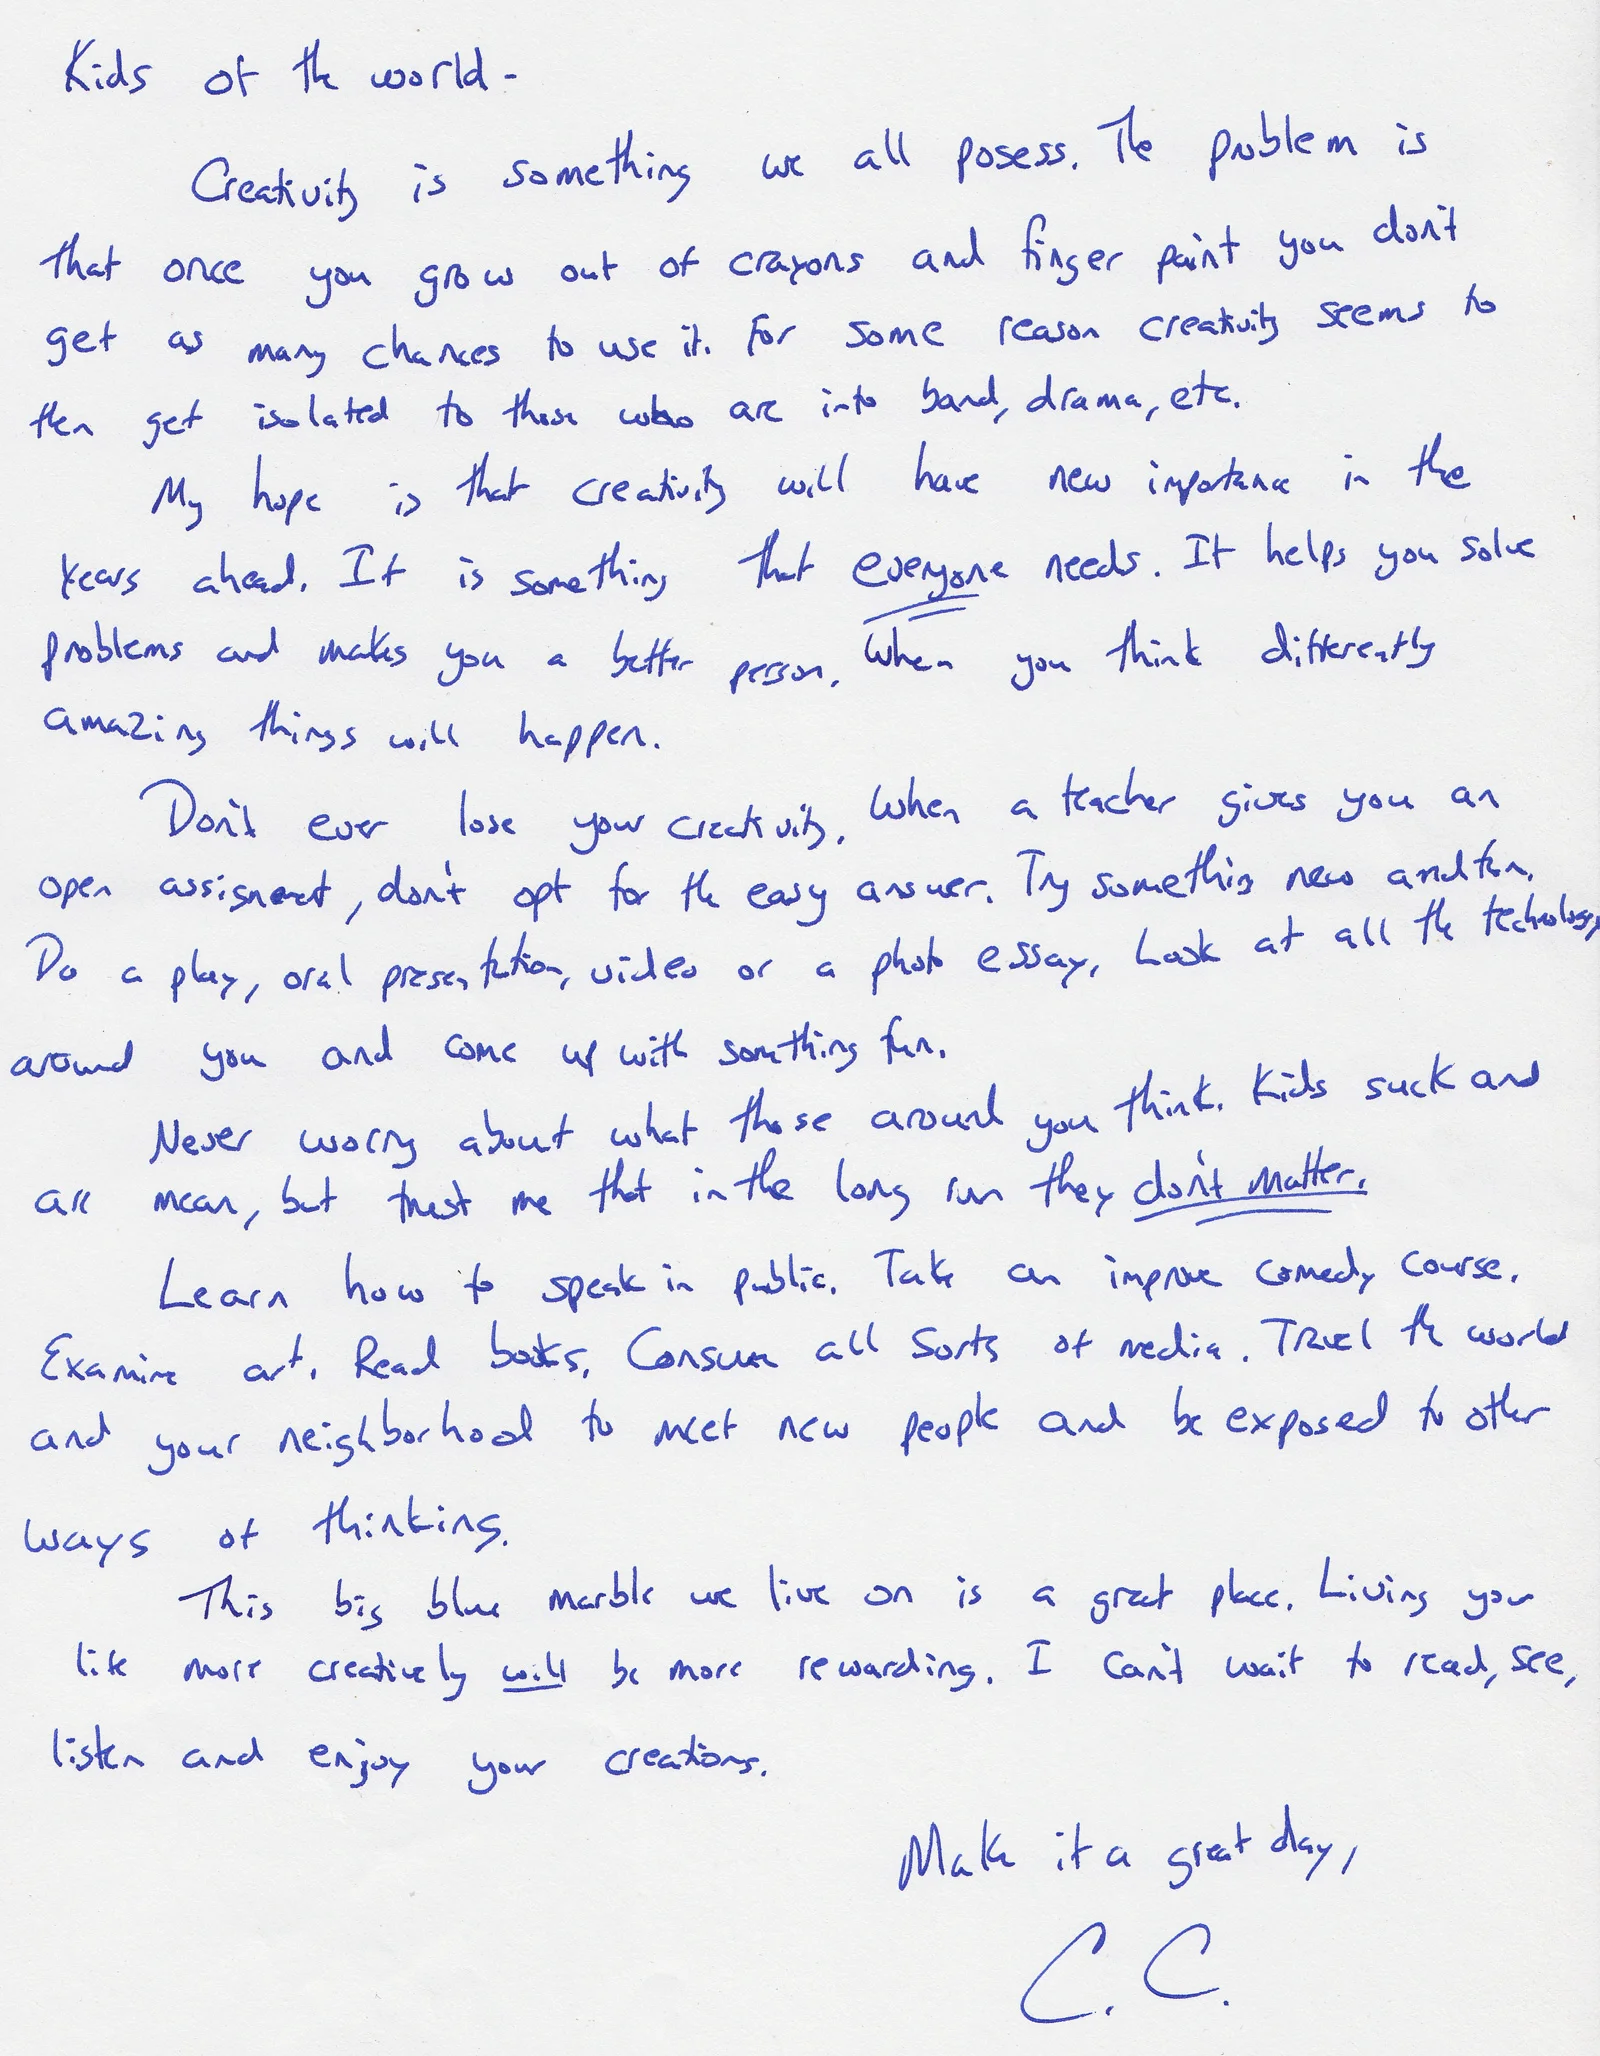 Kids of the world -
Creativity is something we all posess. The problem is
that once you grow out of crayons and finger paint you don't
get as many chances to use it. For some reason creativity seems to
then get isolated to those who are into band, drama, etc.
My hope is that creativity will have new importance in the
years ahead. It is something that everyone needs. It helps you solve
problems and makes you a better person. When you think differently
amazing things will happen.
Don't ever lose your creativity. When a teacher gives you an
open assignment, don't opt for the easy answer. Try something new and fun.
Do a play, oral presentation, video or a photo essay. Look at all the technology
around you and come up with something fun.
Never worry about what those around you think. Kids suck and
are mean, but trust me that in the long run they don't matter.
Learn how to speak in public. Take an improve comedy course.
Examine art. Read books. Consume all sorts of media. Travel the world
and your neighborhood to meet new people and be exposed to other
ways of thinking.
This big blue marble we live on is a great place. Living your
life more creatively will be more rewarding. I can't wait to read, see,
listen and enjoy your creations.
Make it a great day,
C. C.